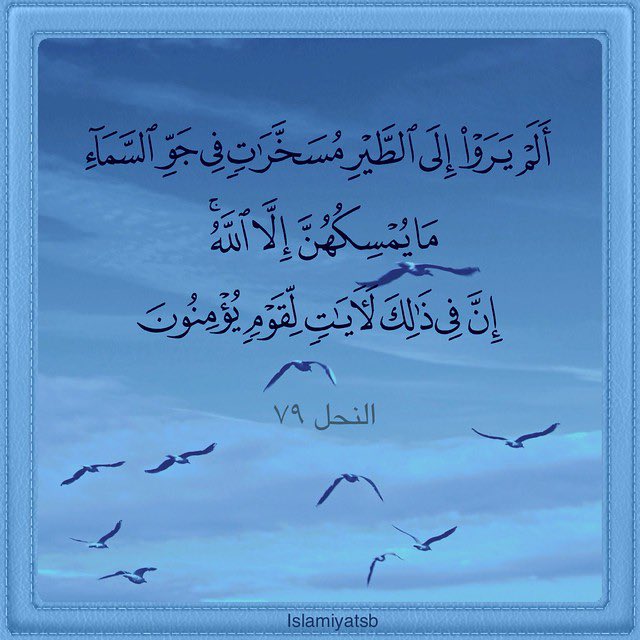 أَلَمْ يَرَوْا۟ إِلَى ٱلطَّيْرِ مُسَخَّرَٰتٍ فِى جَوِّ ٱلسَّمَآءِ
مَا يُمْسِكُهُنَّ إِلَّا ٱللَّهُ ۚ
إِنَّ فِى ذَٰلِكَ لَـَٔايَـٰتٍ لِّقَوْمٍ يُؤْمِنُونَ
النحل ٧٩
Islamiyatsb